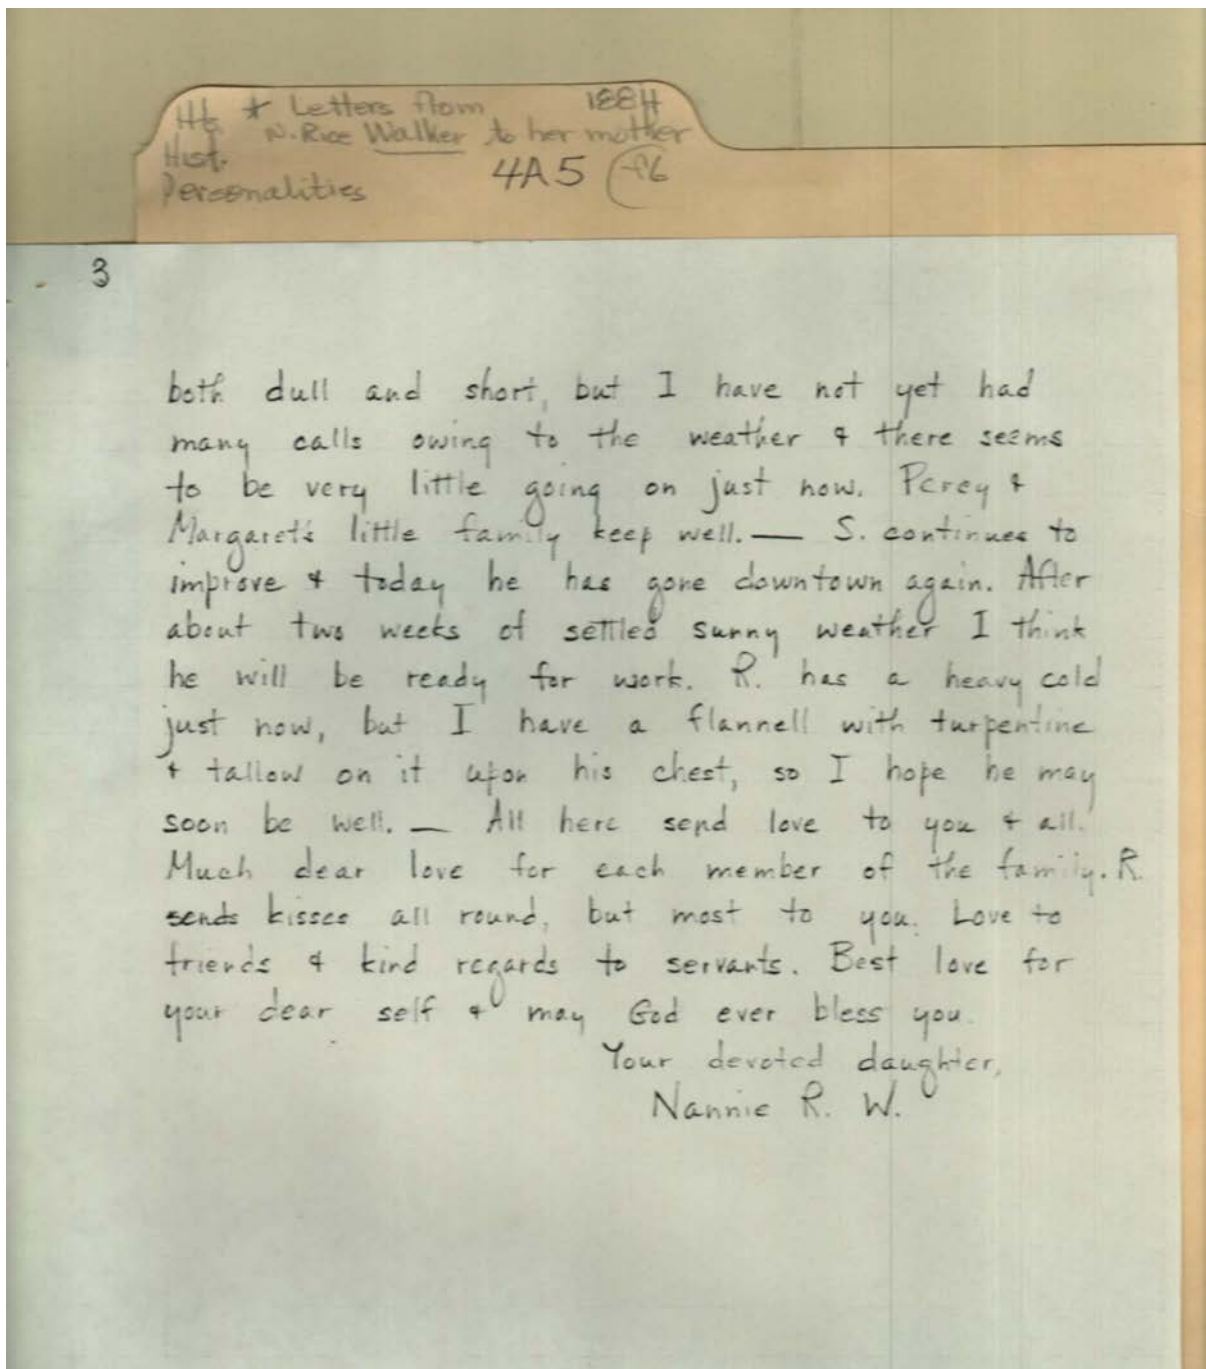 Ht. * Letters from 1884
N. Rice Walker to her mother
Hist.
Personalities 4A5 f6
3
both dull and short, but I have not yet had
many calls owing to the weather & there seems
to be very little going on just now. Percy &
Margaret's little family keep well. — S. continues to
improve & today he has gone downtown again. After
about two weeks of settled sunny weather I think
he will be ready for work. R. has a heavy cold
just now, but I have a flannell with turpentine
& tallow on it upon his chest, so I hope he may
soon be well. — All here send love to you & all.
Much dear love for each member of the family. R.
sends kisses all round, but most to you. Love to
friends & kind regards to servants. Best love for
your dear self & may God ever bless you.
Your devoted daughter,
Nannie R. W.